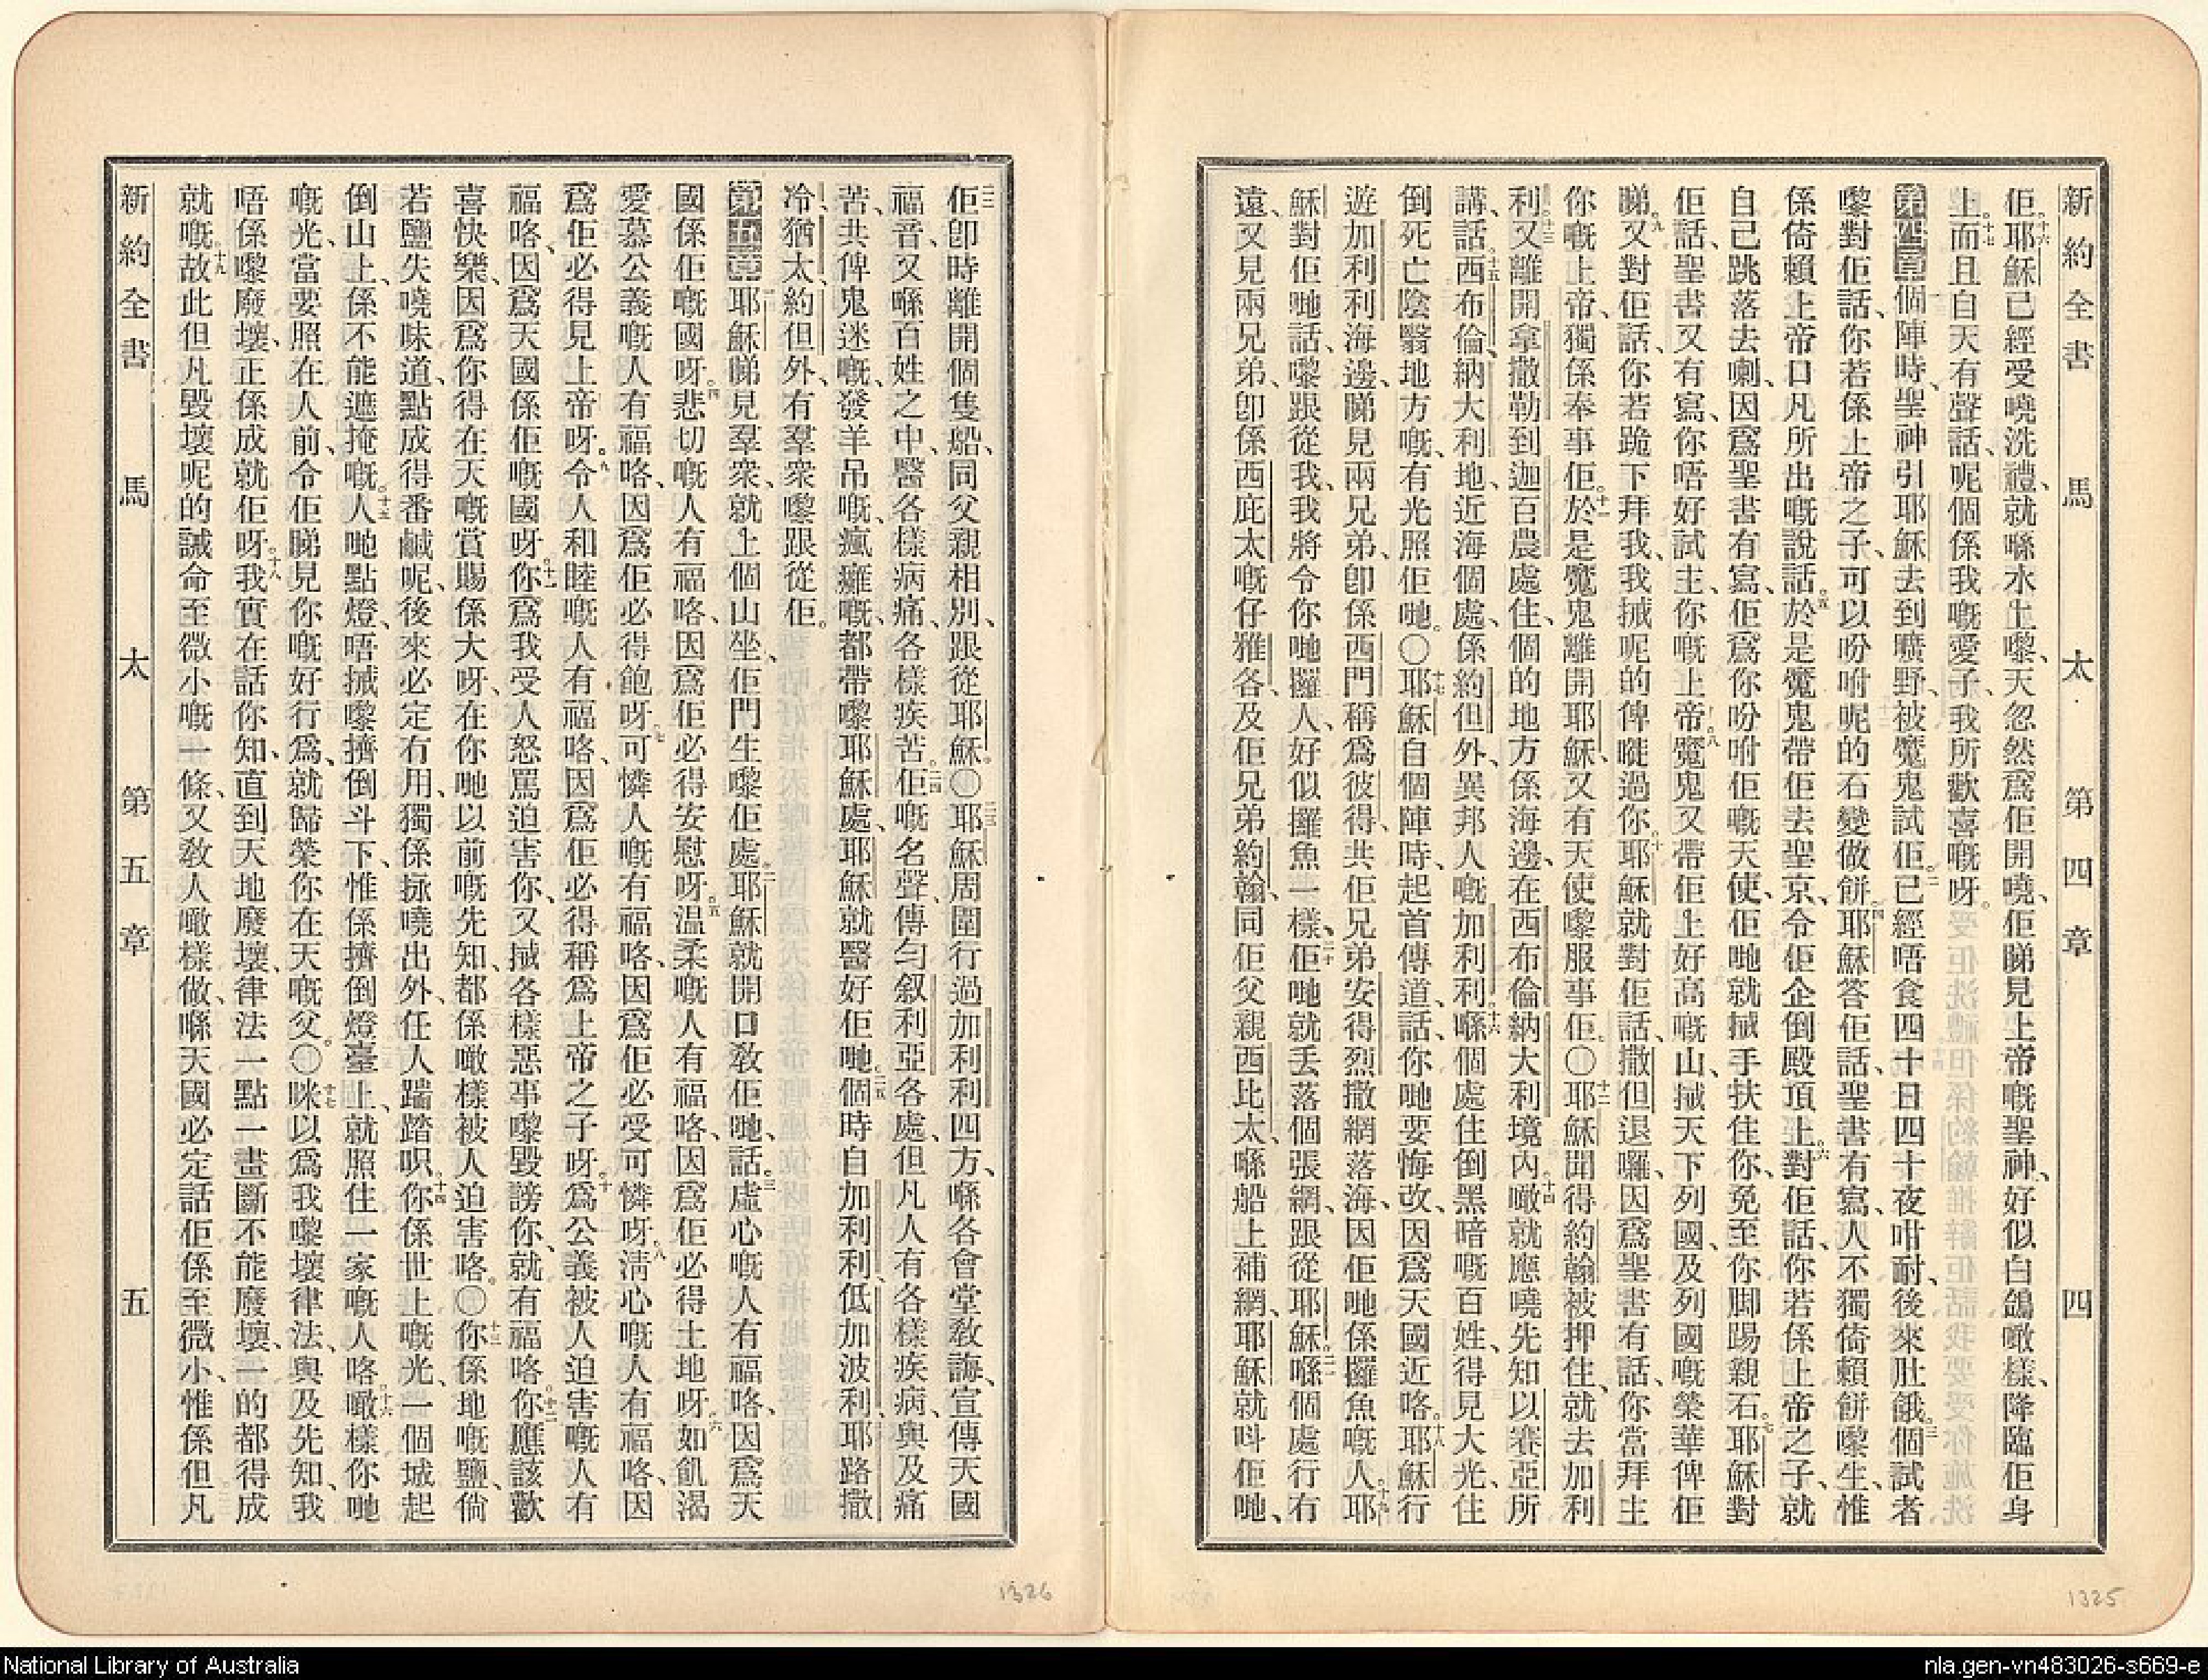 新約全書 馬太 第四章 四
佢。十六耶穌已經受嘵洗禮、就喺水上嚟、天忽然爲佢開嘵、佢睇見上帝嘅聖神、好似白鴿噉樣、降臨佢身
上。十七而且自天有聲話、呢個係我嘅愛子、我所歡喜嘅呀。
第四章個陣時、聖神引耶穌去到曠野、被魔鬼試佢。二已經唔食四十日四十夜咁耐、後來肚餓。三個試者
嚟對佢話、你若係上帝之子、可以吩咐呢的石變做餅。四耶穌答佢話、聖書有寫、人不獨倚賴餅嚟生、惟
係倚賴上帝口凡所出嘅說話。五於是魔鬼帶佢去聖京、令佢企倒殿頂上。六對佢話、你若係上帝之子、就
自己跳落去喇、因爲聖書有寫、佢爲你吩咐佢嘅天使、佢哋就搣手扶住你、免至你脚踢親石。七耶穌對
佢話、聖書又有寫、你唔好試主、你嘅上帝。八魔鬼又帶佢上好高嘅山、搣天下列國、及列國嘅榮華俾佢
睇。九又對佢話、你若跪下拜我、我搣呢的俾嘥過你。十耶穌就對佢話、撒但退囉、因爲聖書有話、你當拜主
你嘅上帝、獨係奉事佢。十一於是魔鬼離開耶穌、又有天使嚟服事佢。〇十二耶穌聞得約翰被押住、就去加利
利。十三又離開拿撒勒到迦百農處住、個的地方係海邊、在西布倫納大利境內。十四噉就應嘵先知以賽亞所
講話。十五西布倫、納大利地、近海個處、係約但外、異邦人嘅加利利。十六喺個處住倒黑暗嘅百姓、得見大光、住
倒死亡陰翳地方嘅、有光照佢哋。〇十七耶穌自個陣時、起首傳道、話、你哋要悔改、因爲天國近咯。十八耶穌行
遊加利利海邊、睇見兩兄弟、卽係西門稱爲彼得、共佢兄弟安得烈撒網落海、因佢哋係攞魚嘅人。十九耶
穌對佢哋話、嚟跟從我、我將令你哋攞人、好似攞魚一樣。二十佢哋就丢落個張網、跟從耶穌。二一喺個處行有
遠、又見兩兄弟、卽係西庇太嘅仔雅各、及佢兄弟約翰、同佢父親西比太、喺船上補網、耶穌就呌佢哋、
二二佢卽時離開個隻船、同父親相別、跟從耶穌。〇二三耶穌周圍行過加利利四方、喺各會堂敎誨、宣傳天國
福音、又喺百姓之中、醫各樣病痛、各樣疾苦。二四佢嘅名聲、傳勻叙利亞各處、但凡人有各樣疾病、與及痛
苦、共俾鬼迷嘅、發羊吊嘅、瘋癱嘅、都帶嚟耶穌處、耶穌就醫好佢哋。二五個時自加利利、低加波利、耶路撒
冷、猶太、約但外、有羣衆嚟跟從佢。
第五章一耶穌睇見羣衆、就上個山坐、佢門生嚟佢處。二耶穌就開口敎佢哋、話。三虛心嘅人有福咯、因爲天
國係佢嘅國呀。四悲切嘅人有福咯、因爲佢必得安慰呀。五温柔嘅人有福咯、因爲佢必得土地呀。六如飢渴
愛慕公義嘅人有福咯、因爲佢必得飽呀。七可憐人嘅有福咯、因爲佢必受可憐呀。八淸心嘅人有福咯、因
爲佢必得見上帝呀。九令人和睦嘅人有福咯、因爲佢必得稱爲上帝之子呀。十爲公義被人迫害嘅人有
福咯、因爲天國係佢嘅國呀。十一你爲我受人怒罵迫害你、又搣各樣惡事嚟毀謗你、就有福咯。十二你應該歡
喜快樂、因爲你得在天嘅賞賜係大呀、在你哋以前嘅先知、都係噉樣被人迫害咯。〇十三你係地嘅鹽、倘
若鹽失嘵味道、點成得番鹹呢、後來必定有用、獨係掁嘵出外、任人踹踏呮。十四你係世上嘅光、一個城起
倒山上、係不能遮掩嘅。十五人哋點燈、唔搣嚟擠倒斗下、惟係擠倒燈臺上、就照住一家嘅人咯。十六噉樣你哋
嘅光、當要照在人前、令佢睇見你嘅好行爲、就歸榮你在天嘅父。〇十七咪以爲我嚟壞律法、與及先知、我
唔係嚟廢壞、正係成就佢呀。十八我實在話你知、直到天地廢壞、律法一點一畫斷不能廢壞、一的都得成
就嘅。十九故此但凡毀壞呢的誡命至微小嘅一條、又敎人噉樣做、喺天國必定話佢係至微小、惟係但凡
新約全書 馬太 第五章 五
1326
1325
National Library of Australia
nla.gen-vn483026-s669-e